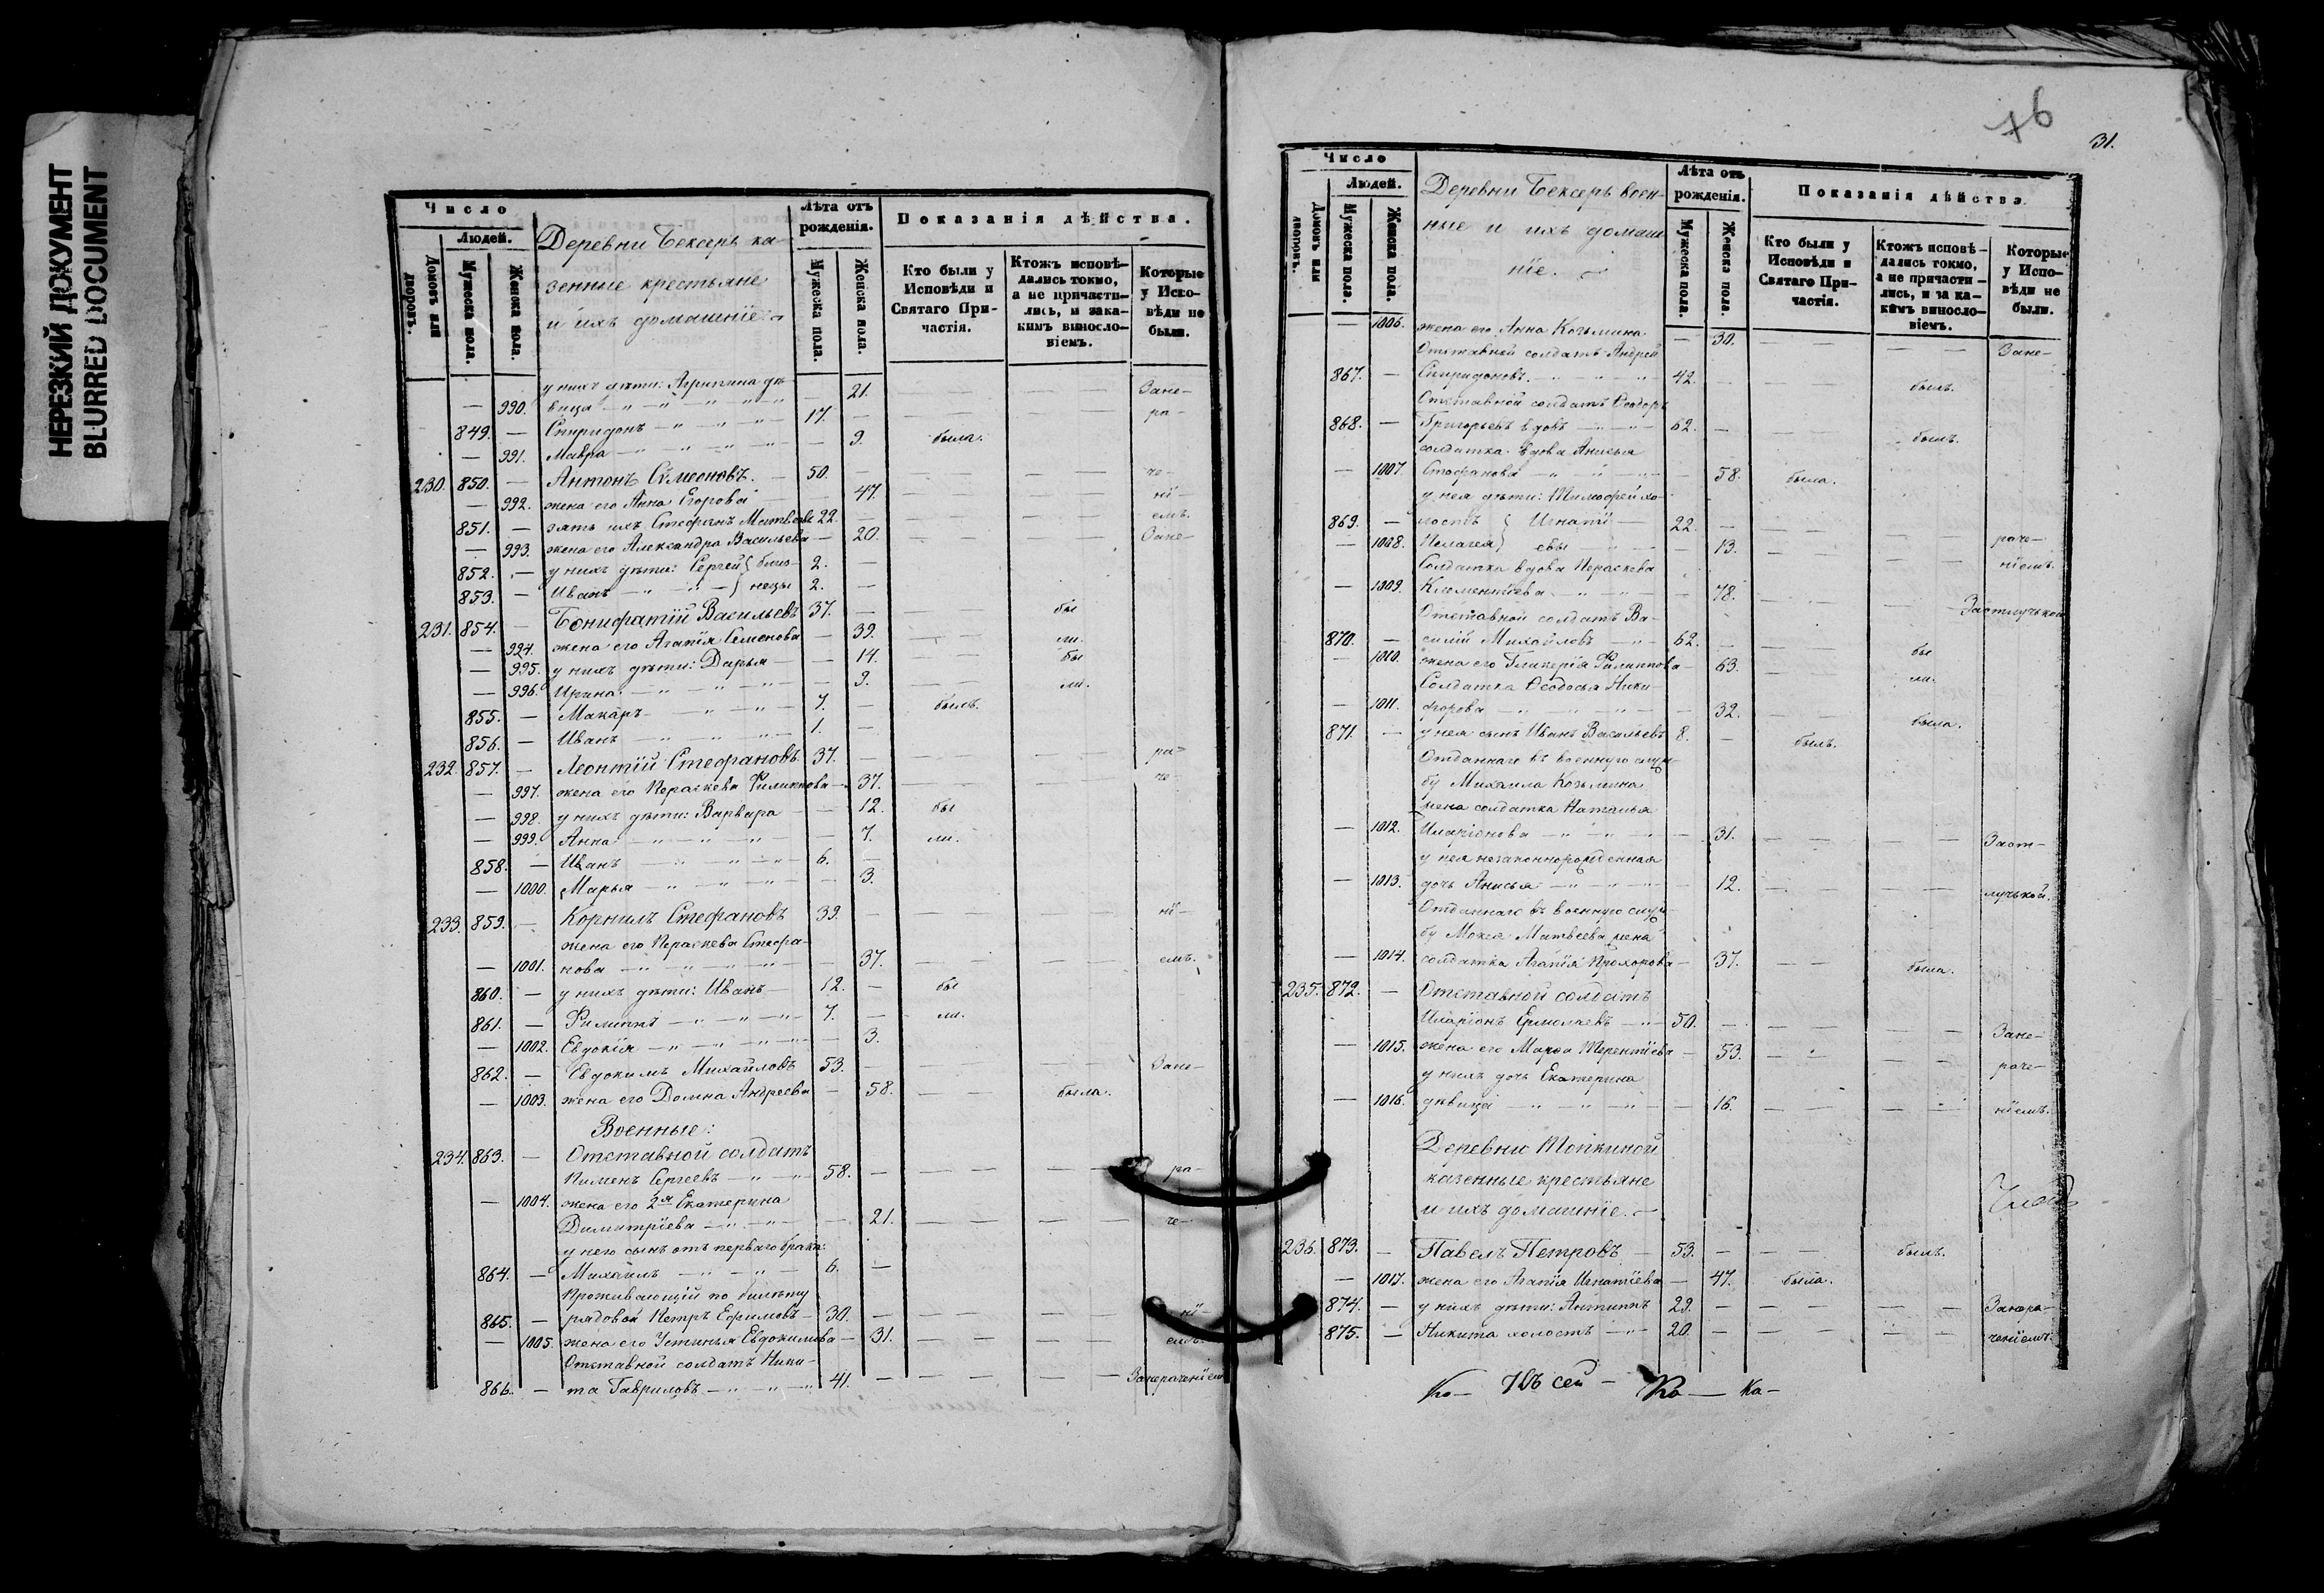 НЕРЕЗКИЙ ДОКУМЕНТ
BLURRED DOCUMENT
Число
Людей.
Домовъ или дворовъ.
Мужеска пола.
Женска пола.
Деревни Бексеръ ка-
зенные крестьяне
и ихъ домашніе.
Лѣта отъ рожденія.
Мужеска пола.
Женска пола.
Показанія дѣйства.
Кто были у Исповѣди и Святаго Причастія.
Ктожъ исповѣ-дались токмо, а не причасти-лись, и за ка-кимъ винословіемъ.
Которые у Испо-вѣди не были.
у нихъ дѣти: Агрипина дѣ-
— 990. вица — 21. Зане-
849. — Спиридонъ 17. — ра-
— 991. Мавра — 9. была.
230. 850. — Антонъ Сѵмеоновъ. 50. — че-
— 992. жена его Анна Егорова — 47. ні-
851. — зять ихъ Стефанъ Матвеевъ 22. — емъ.
— 993. жена его Александра Васильева — 20. Зане-
852. — у нихъ дѣти: Сергей } близ- 2. —
853. — Иванъ } нецы 2. —
231. 854. — Бонифатій Васильевъ 37. — бы
— 994. жена его Агапія Семенова — 39. ли.
— 995. у нихъ дѣти: Дарья — 14. бы
— 996. Ирина — 9. ли.
855. — Макаръ 7. — былъ.
856. — Иванъ 1. —
232. 857. — Леонтій Стефановъ 37. — ра-
— 997. жена его Параскева Филиппова — 37. че-
— 998. у нихъ дѣти: Варвара — 12. бы
— 999. Анна — 7. ли.
858. — Иванъ 6. —
— 1000. Марья — 3.
233. 859. — Корнилъ Стефановъ 39. — ні-
жена его Параскева Стефа-
— 1001. нова — 37. емъ.
860. — у нихъ дѣти: Иванъ 12. — бы
861. — Филиппъ 7. — ли.
— 1002. Евдокія — 3.
862. — Евдокимъ Михайловъ 53. — Зане-
— 1003. жена его Домна Андреева — 58. была.
Военные:
234. 863. — Отставной солдатъ
Пименъ Сергеевъ 58. — ра-
— 1004. жена его 2я Екатерина
Димитріева — 21. че-
у него сынъ отъ перваго брака:
864. — Михаилъ 6. —
Проживающій по билету
865. — рядовой Петръ Ефимовъ 30. — ні-
— 1005. жена его Устинья Евдокимова — 31. емъ.
Отставной солдатъ Ники-
866. — та Гавриловъ 41. — Занераченіем
76
31.
Число
Людей.
Домовъ или дворовъ.
Мужеска пола.
Женска пола.
Деревни Бексеръ воен-
ные и ихъ домаш-
ніе.
Лѣта отъ рожденія.
Мужеска пола.
Женска пола.
Показанія дѣйства.
Кто были у Исповѣди и Святаго При-частія.
Ктожъ исповѣ-дались токмо, а не причасти-лись, и за ка-кимъ винословіемъ.
Которые у Испо-вѣди не были.
— 1006. жена его Анна Козьмина — 30. Зане-
Отставной солдатъ Андрей
867. — Спиридоновъ. 42. — былъ.
Отставной солдатъ Ѳеодоръ
868. — Григорьевъ вдовъ 62. — былъ.
солдатка вдова Анисья
— 1007. Стефанова — 58. была.
у нея дѣти: Тимофей хо-
869. — лостъ } Игнаті- 22. —
— 1008. Пелагея } евы — 13. раче-
Солдатка вдова Параскева ніемъ.
— 1009. Клементіева — 78. Заотлучькой
Отставной солдатъ Ва-
870. — силій Михайловъ 62. — бы
— 1010. жена его Гликерія Филиппова — 63. ли.
Солдатка Ѳеодосья Ники-
— 1011. форова — 32. была.
871. — у нея сынъ Иванъ Васильевъ 8. — былъ.
Отданнаго въ военную служ-
бу Михаила Козьмина
жена солдатка Наталья
— 1012. Иларіонова — 31. Заот-
у нея незаконнорожденная
— 1013. дочь Анисья — 12. лучькой.
Отданнаго въ военную служ-
бу Мокея Матвеева жена
— 1014. солдатка Агапія Прохорова — 37. была.
235. 872. — Отставной солдатъ
Иларіонъ Ермолаевъ 50. — Зане-
— 1015. жена его Марѳа Терентіева — 53. раче-
у нихъ дочь Екатерина
— 1016. дѣвица — 16. ніемъ.
Деревни Топкиной
казенные крестьяне
и ихъ домашніе.
236. 873. — Павелъ Петровъ 53. — былъ.
— 1017. жена его Агапія Игнатіева — 47. была.
874. — у нихъ дѣти: Антипъ 29. — Занера-
875. — Никита холостъ 20. — ченіемъ.
Ко — Ка — Ка —